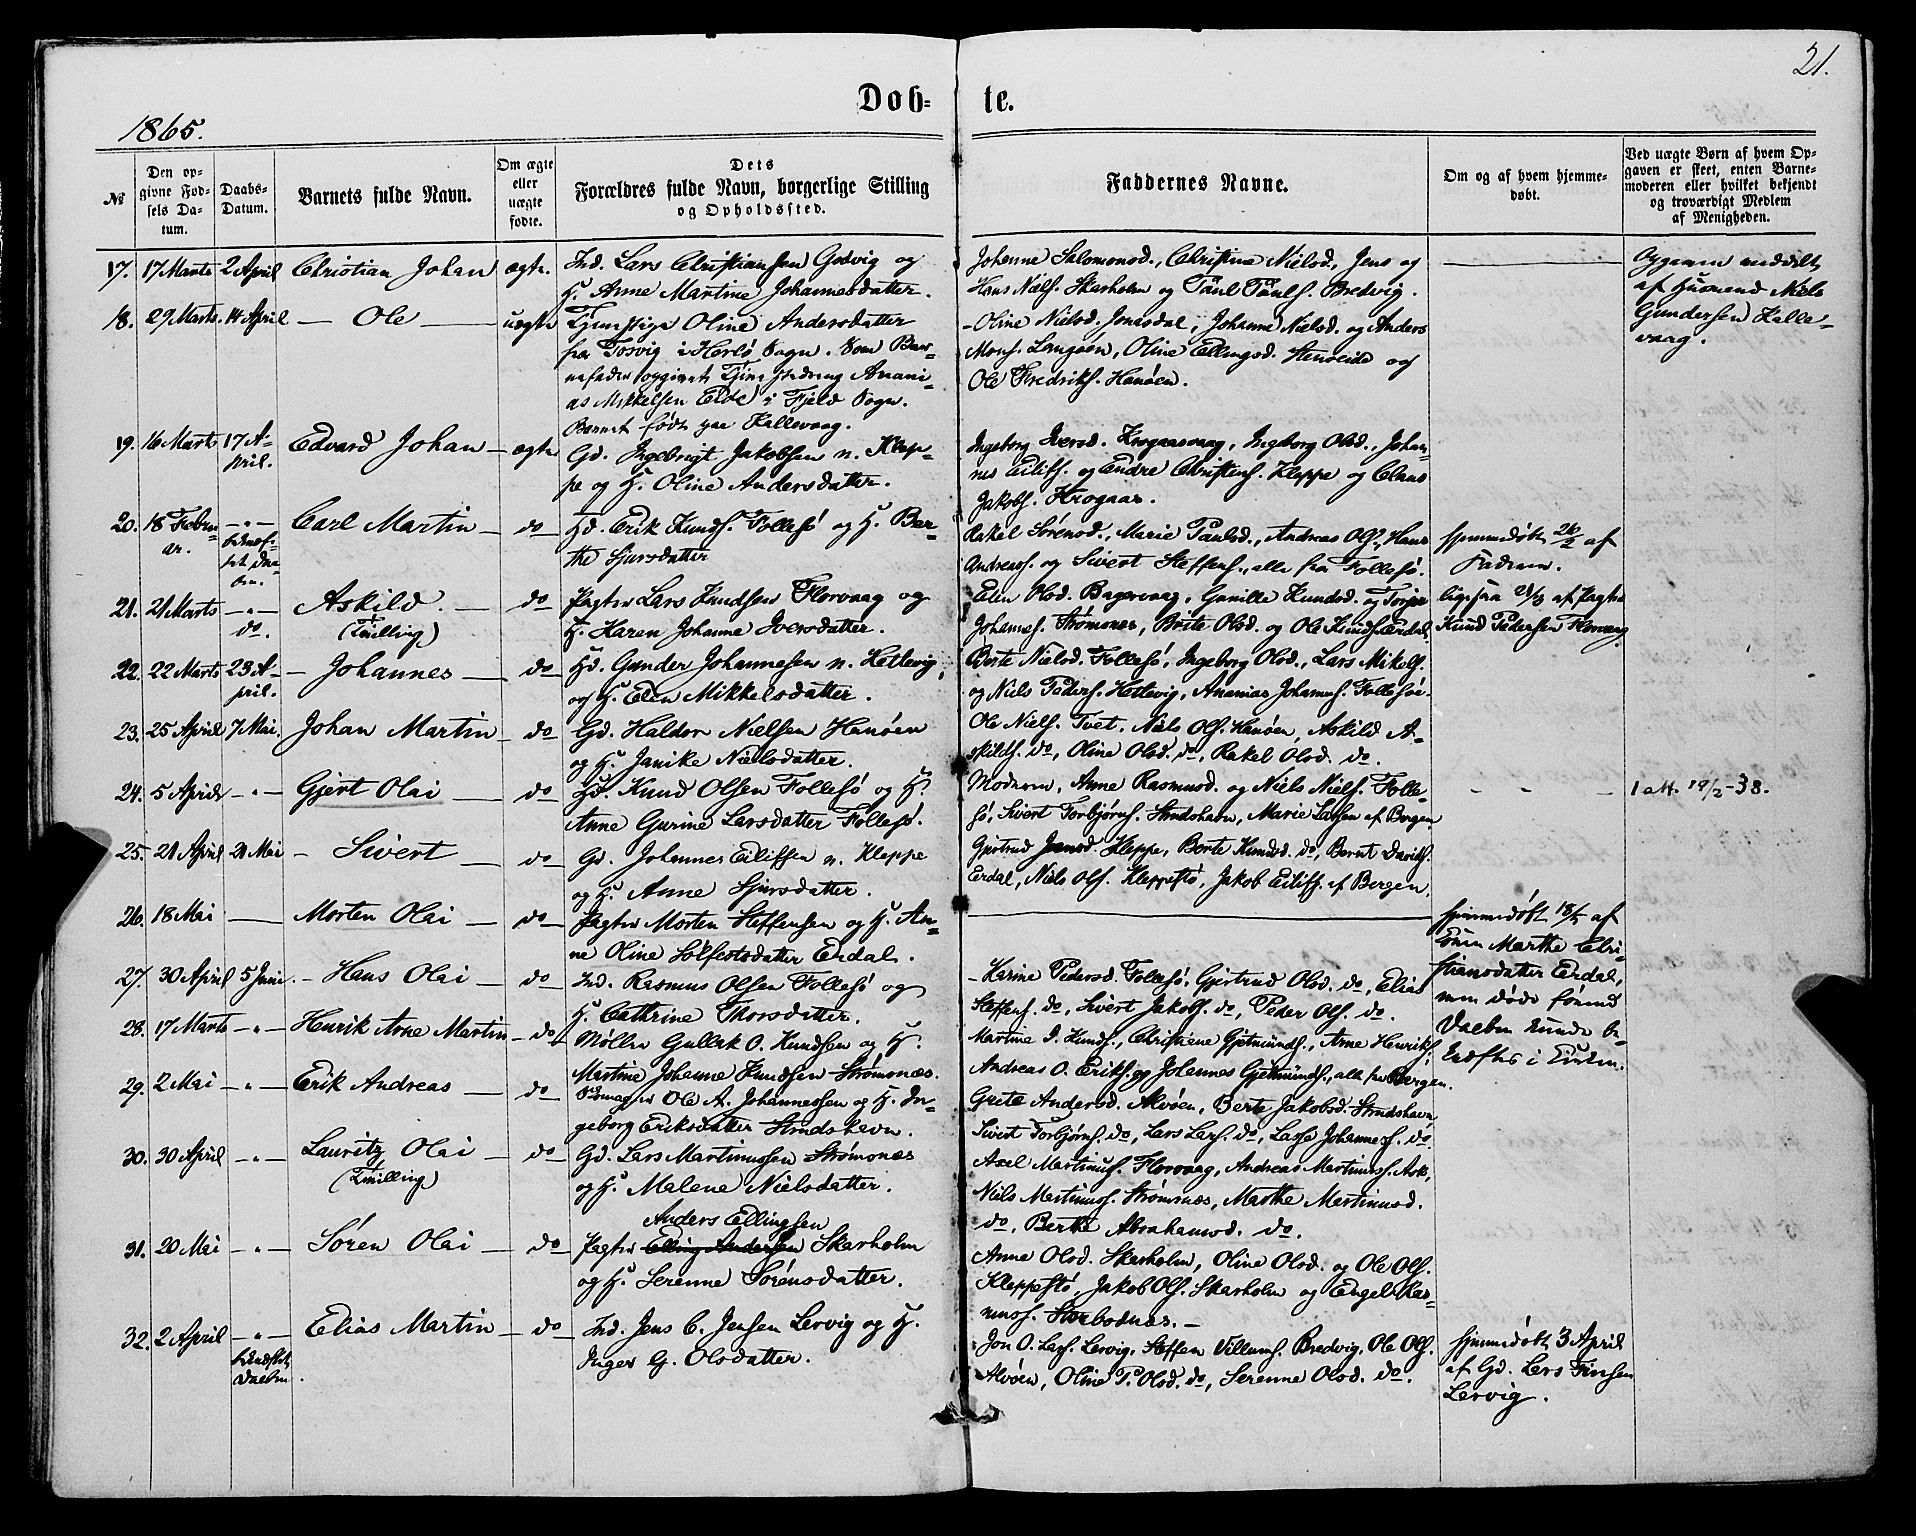 21.
Døb= te.
1865.
№
Den op-
givne Fød-
sels Da-
tum.
Daabs-
Datum.
Barnets fulde Navn.
Om ægte
eller
uægte
fødte.
Dets
Forældres fulde Navn, borgerlige Stilling
og Opholdssted.
Faddernes Navne.
Om og af hvem hjemme-
døbt.
Ved uægte Børn af hvem Op-
gaven er skeet, enten Barne-
moderen eller hvilket bekjendt
og troværdigt Medlem
af Menigheden.
17. 17 Marts 2 April Christian Johan ægte.
Ind. Lars Christiansen Godvig og
H. Anne Martine Johannesdatter.
Johanne Salomonsd., Christina Nielsd., Jens og
Hans Nielss. Skarholm og Paul Pauls. Bredvig.
Opgaven meddelt
af Husmand Niels
Gundersen Kalle-
vaag.
18. 29 Marts 14 April — Ole — uægte
Tjenstpige Oline Andersdatter
fra Tosvig i Herlø Sogn. Som Bar-
nefader opgivet Tjenestedreng Anani-
as Mikkelsen Eide i Fjeld Sogn.
Barnet født paa Kallevaag.
Oline Nielsd. Jonasdal, Johanne Nielsd. og Anders
Mons. Langøen, Oline Ellingsd. Steneide og
Ole Fredriks. Hanøen.
19. 16 Marts 17 A-
pril.
Edvard Johan — ægte
Gd. Ingebrigt Jakobsen n. Klep-
pe og H. Oline Andersdatter.
Ingeborg Iversd. Krogaasvaag, Ingeborg Olsd., Johan-
nes Eilifs. og Endre Christens. Kleppe og Claus
Jakobs. Krogaas.
20. 18 Febru-
ar.
—"—
bekræf-
tet Daa-
ben.
Carl Martin — do
Hd. Erik Knuds. Follesø og H. Bar-
the Sjursdatter
Rakel Sørensd., Marie Paulsd., Andreas Ols., Hans
Andreass. og Sivert Steffens., alle fra Follesø.
hjemmedøbt 26/2 af
Faderen.
21. 21 Marts —"—
do.
Askild. — do
(Tvilling)
Pagter Lars Knudsen Florvaag og
H. Karen Johanne Iversdatter.
Elen Olsd. Bagervaag, Gunilde Knudsd. og Torger
Johanness. Strømsnes, Brite Olsd. og Ole Knuds. Erdal,
ligesaa 21/3 af Pagter
Knud Pedersen Florvaag
22. 22 Marts 23 A-
pril.
— Johannes — do
Hd. Gunder Johannesen n. Hetlevig,
og H. Elen Mikkelsdatter.
Børte Nielsd. Follesø, Ingeborg Olsd., Lars Mikels.
og Niels Peders. Hetlevig, Ananias Johanness. Follesø.
23. 25 April 7 Mai Johan Martin — do
Gd. Haldor Nielsen Hanøen
og H. Janike Nielsdatter.
Ole Niels. Tvet, Niels Ols. Hanøen, Askild A-
skilds. do, Oline Olsd. do, Rakel Olsd. do.
24. 5 April —"— Gjert Olai — do
Hd. Knud Olsen Follesø og H.
Anne Gurine Larsdatter Follesø.
Moderen, Anne Rasmusd. og Niels Niels. Folle-
sø, Sivert Torbjørns. Strudshavn, Marie Larsen af Bergen.
1 att. 19/2-38.
25. 21 April 21 Mai — Sivert — do
Gd. Johannes Eilifsen n. Kleppe
og H. Anne Sjursdatter.
Gjertrud Jensd. Kleppe, Berte Knudsd. do, Bernt Davids.
Erdal, Niels Ols. Kleppestø, Jakob Eilifs. af Bergen.
26. 18 Mai — Morten Olai — do
Pagter Morten Steffensen og H. An-
ne Oline Solfestsdatter Erdal.
hjemmedøbt 18/5 af
Konen Marthe Chri-
stiansdatter Erdal,
men døde førend
Daaben kunde be-
kræftes i Kirken.
27. 30 April 5 Juni — Hans Olai — do
Ind. Rasmus Olsen Follesø og
H. Cathrine Thorsdatter.
Karine Pedersd. Follesø, Gjertrud Olsd. do, Elias
Steffens. do, Sivert Jakobs. do, Peder Ols. do.
28. 17 Marts —"— Henrik Arne Martin — do
Møller Gullak O. Knudsen og H.
Martine Johanne Knudsen Strømsnæs.
Martine D. Knuds., Christiane Gjetmunds., Arne Henriks.,
Andreas O. Eriks. og Johannes Gjetmunds., alle fra Bergen.
29. 2 Mai —"— Erik Andreas — do
Ole A. Johannessen og H. In-
geborg Eriksdatter Strudshavn.
Grete Andersd. Alvøen, Berte Jakobsd. Strudshavn
Sivert Torbjørns. do, Lars Lars. do, Lasse Johanness. do
30. 30 April —"— Lauritz Olai — do
(Tvilling)
Gd. Lars Martinussen Strømsnæs
og H. Malene Nielsdatter.
Axel Martinuss. Florvaag, Andreas Martinuss. Ask,
Niels Martinuss. Strømsnæs, Marthe Martinusd.
do, Berthe Abrahamsd. do.
31. 20 Mai —"— Søren Olai — do
Anders Ellingsen
Pagter Elling Andersen Skarholm
og H. Serenne Sørensdatter.
Anne Olsd. Skarholm, Oline Olsd. og Ole Ols.
Kleppestø, Jakob Ols. Skarholm og Engel Ras-
muss. Storbodnæs. —
32. 2 April —"—
bekræftet
Daaben.
Elias Martin — do
Ind. Jens C. Jensen Lervig og H.
Inger G. Olsdatter.
Jon O. Lars. Lervig, Steffen Villums. Bredvig, Ole Ols.
Alvøen, Oline P. Olsd. do, Serenne Olsd. do.
hjemmedøbt 3 April
af Gd. Lars Finsen
Lervig.